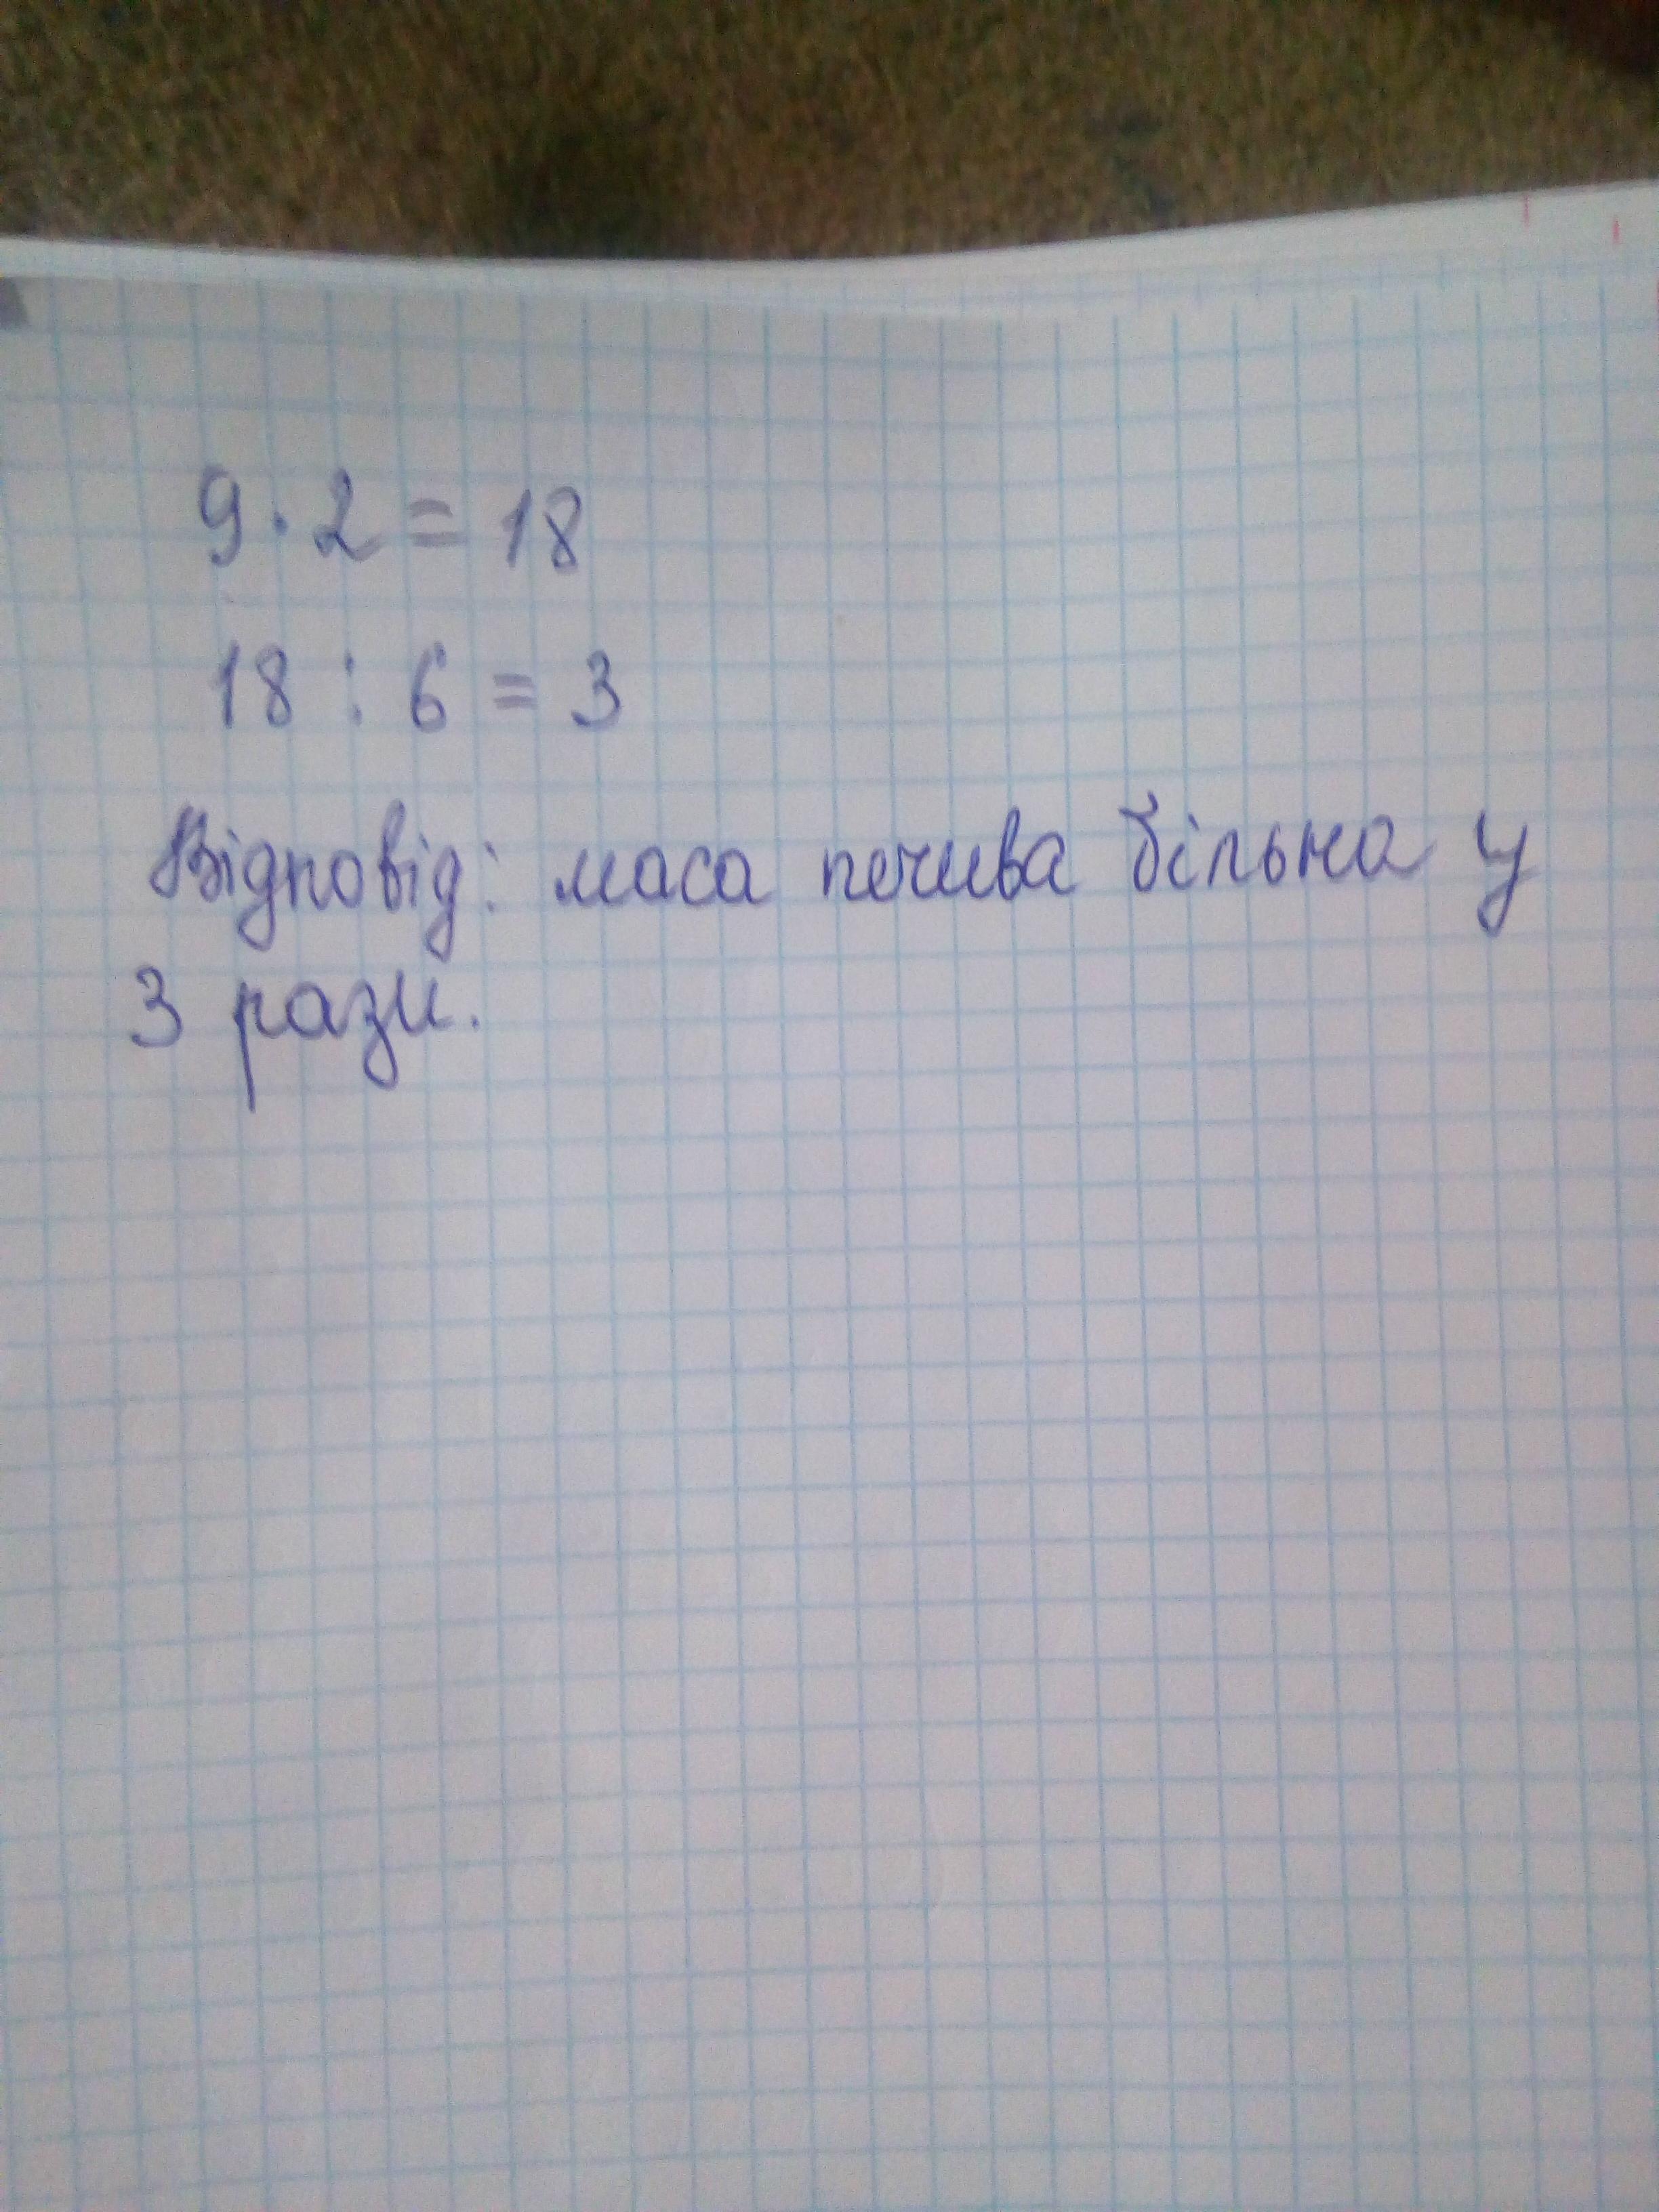 9 · 2 = 18
18 : 6 = 3
Відповід: маса печива більна у
3 рази.